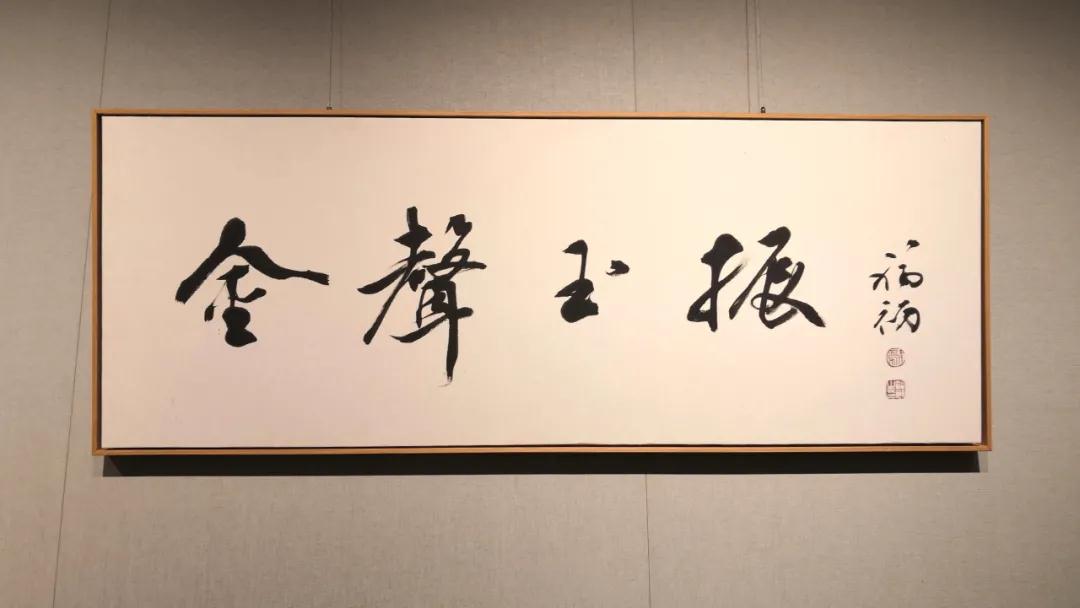 金聲玉振
福